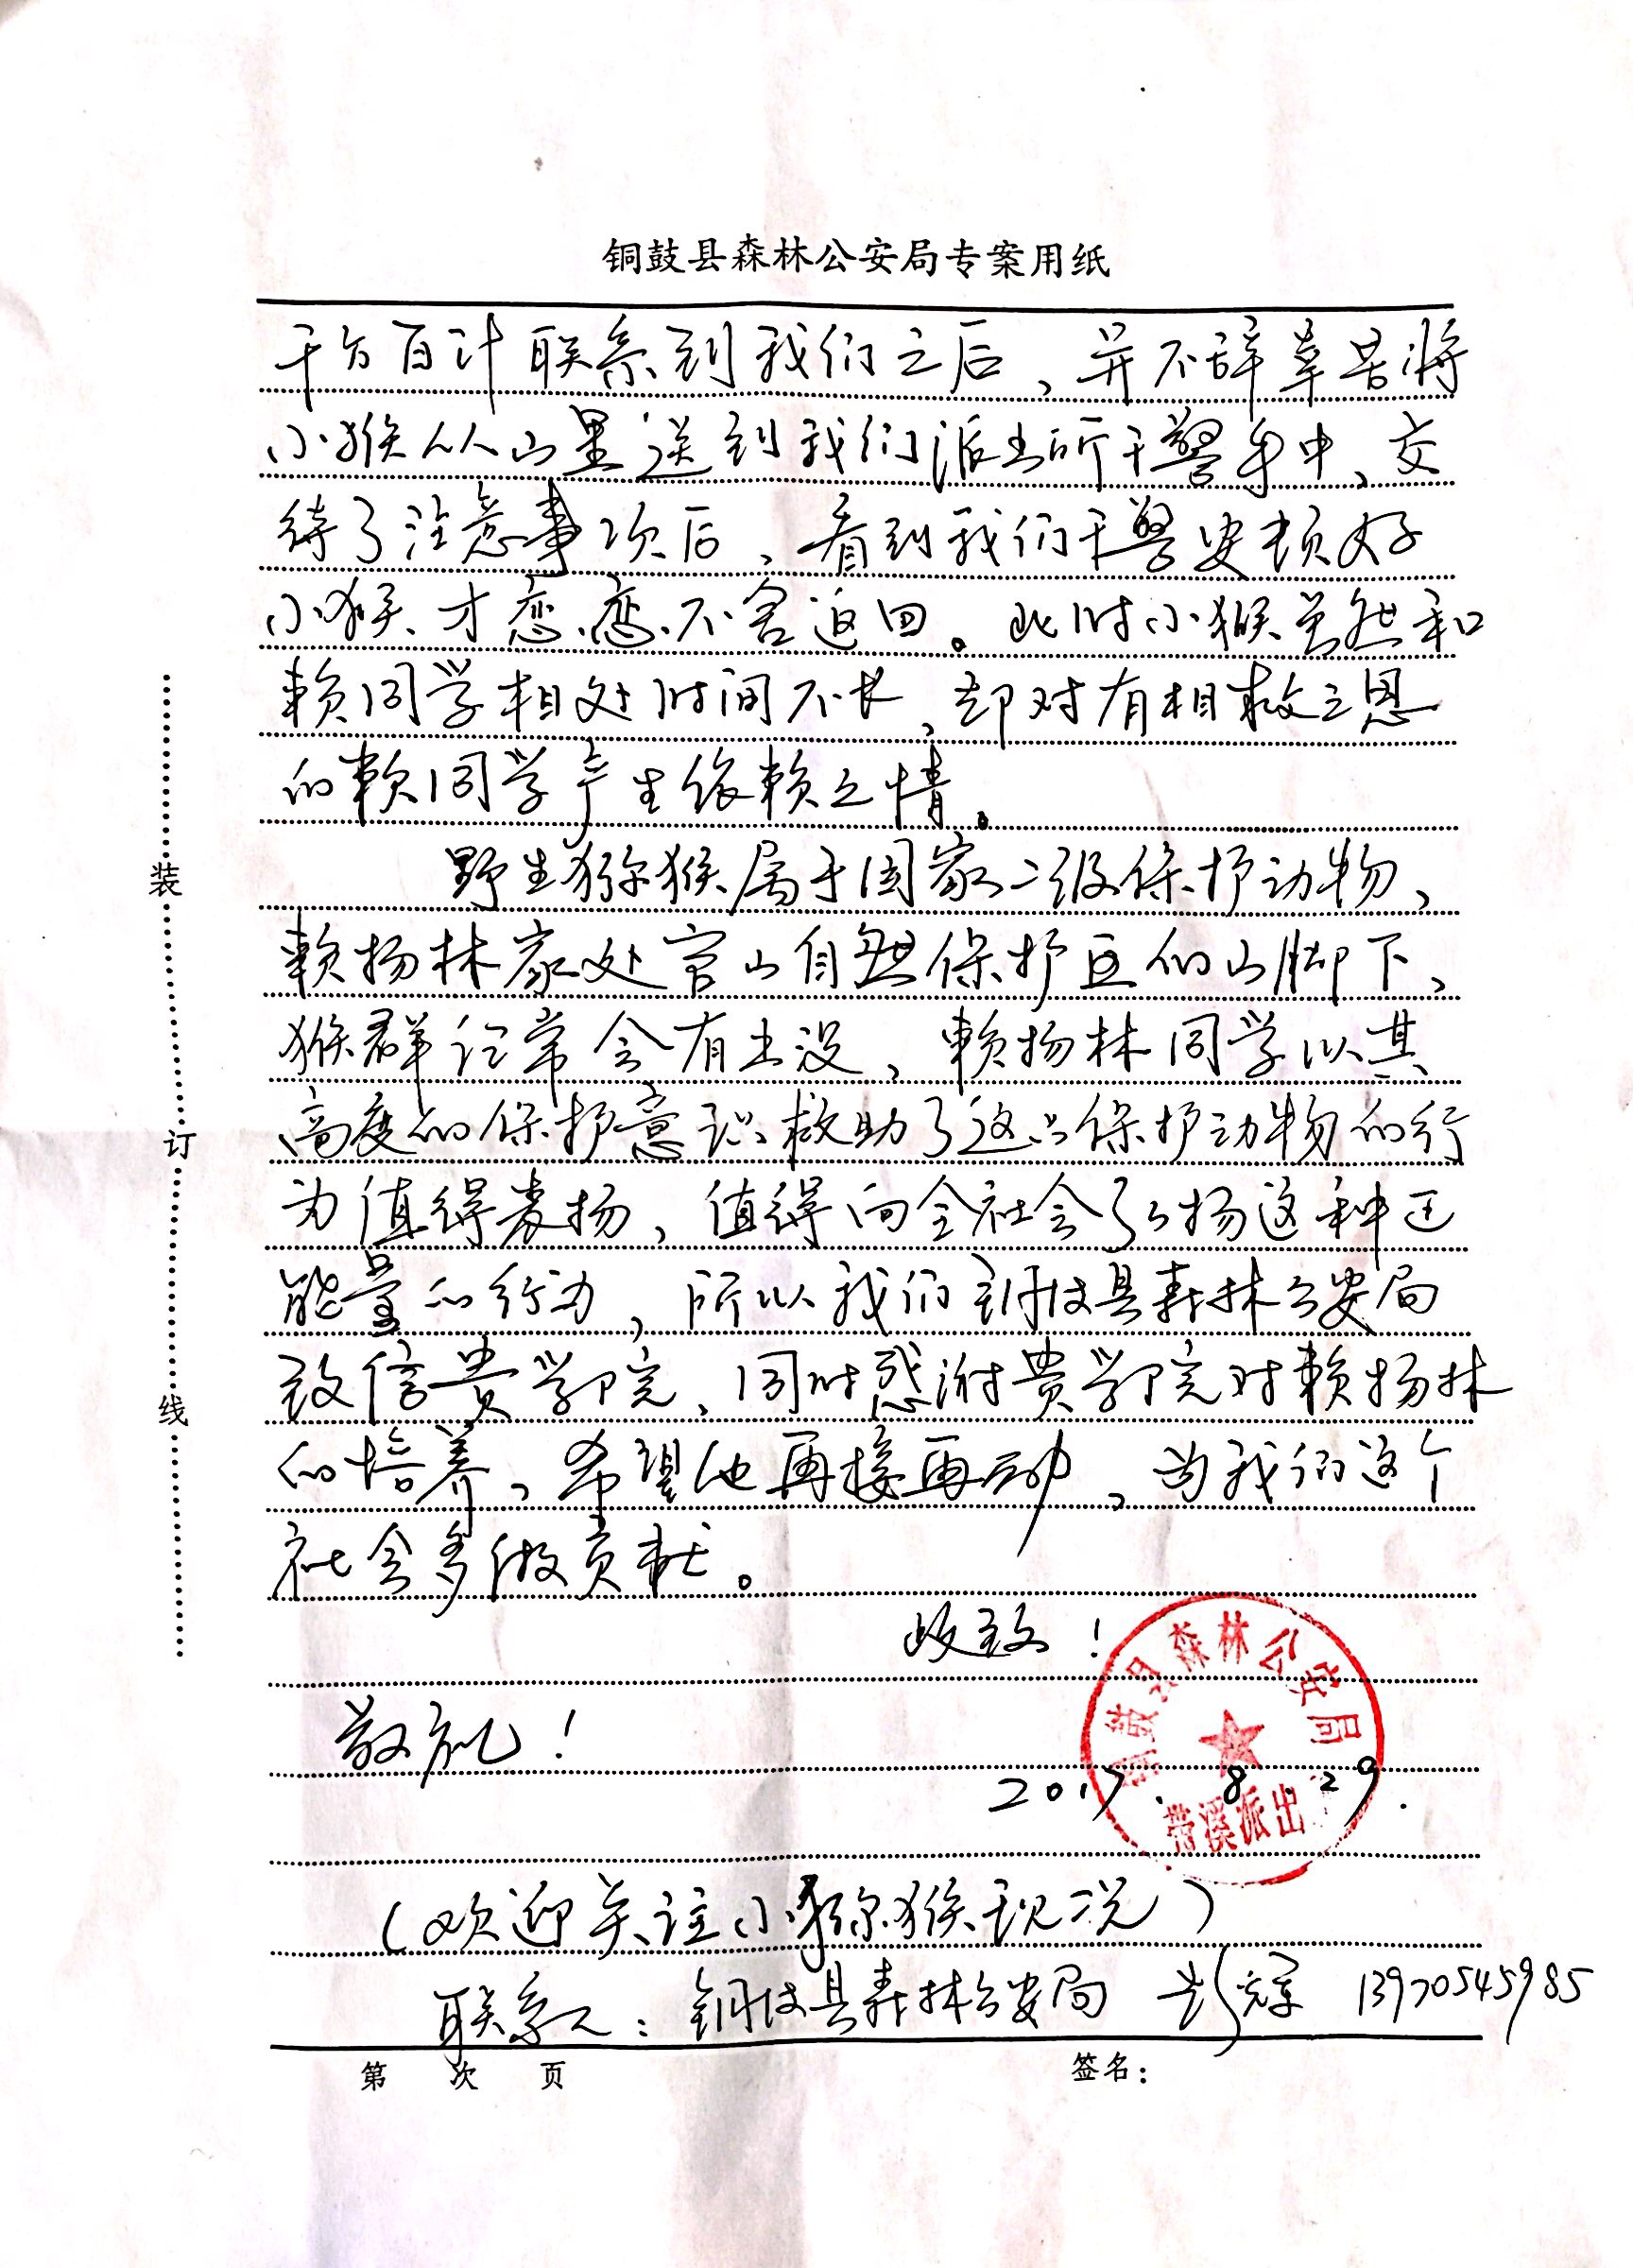 铜鼓县森林公安局专案用纸
千方百计联系到我们之后，并不辞辛苦将
小猴从山里送到我们派出所干警手中，交
待了注意事项后，看到我们干警安顿好
小猴、才恋恋不舍返回。此时小猴虽然和
赖同学相处时间不长，却对有相救之恩
的赖同学产生依赖之情。
野生猕猴属于国家二级保护动物，
赖扬林家处官山自然保护区的山脚下，
猴群经常会有出没，赖扬林同学以其
高度的保护意识救助了这只保护动物的行
为值得表扬，值得向全社会弘扬这种正
能量的行为，所以我们铜鼓县森林公安局
致信贵学院，同时感谢贵学院对赖扬林
的培养，希望他再接再励，为我们这个
社会多做贡献。
此致！
敬礼！
2017.8.29.
铜鼓县森林公安局
带溪派出
（欢迎关注小猕猴现况）
联系人：铜鼓县森林公安局 彭辉 13970545985
第 次 页 签名：
装
订
线